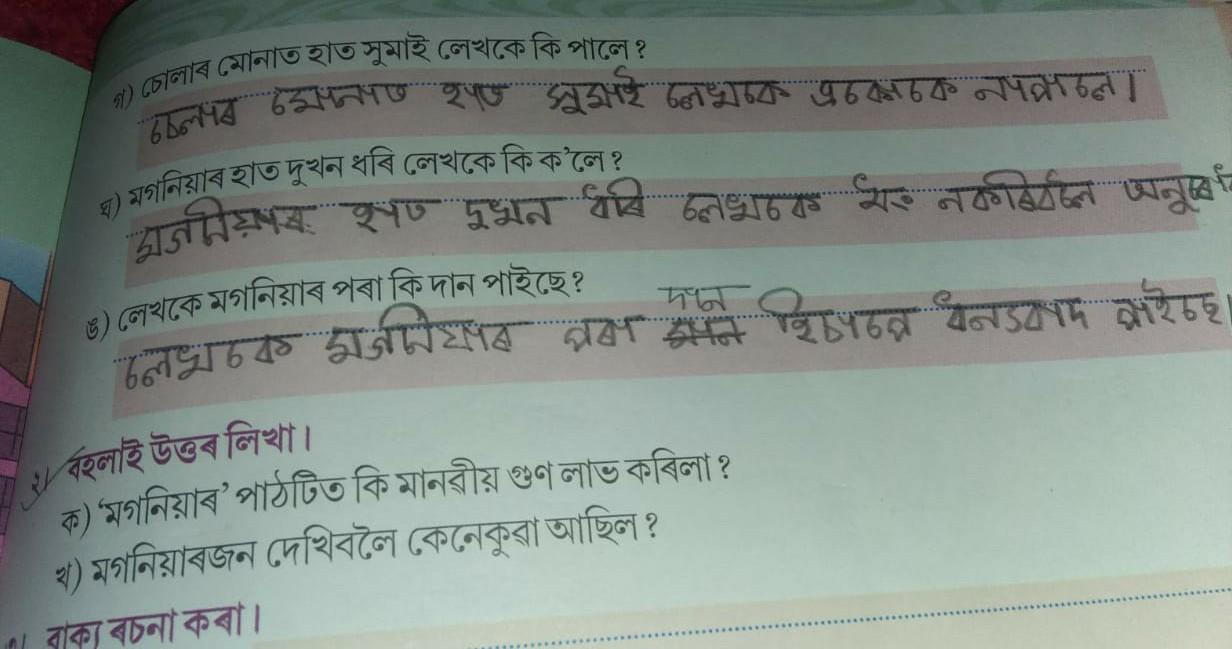 গ) চোলাৰ মোনাত হাত সুমাই লেখকে কি পালে?
চোলাৰ মোনাত হাত সুমাই লেখকে একোকে নাপালে।
ঘ) মগনিয়াৰ হাত দুখন ধৰি লেখকে কি ক'লে?
মগনীয়াৰ হাত দুখন ধৰি লেখকে নকৰিবলৈ
ঙ) লেখকে মগনিয়াৰ পৰা কি দান পাইছে?
দান
লেখকে মগনিয়াৰ পৰা হিচাপে ধন্যবাদ পাইছে
২। বহলাই উত্তৰ লিখা।
ক) 'মগনিয়াৰ' পাঠটিত কি মানৱীয় গুণ লাভ কৰিলা?
খ) মগনিয়াৰজন দেখিবলৈ কেনেকুৱা আছিল?
বাক্য ৰচনা কৰা।